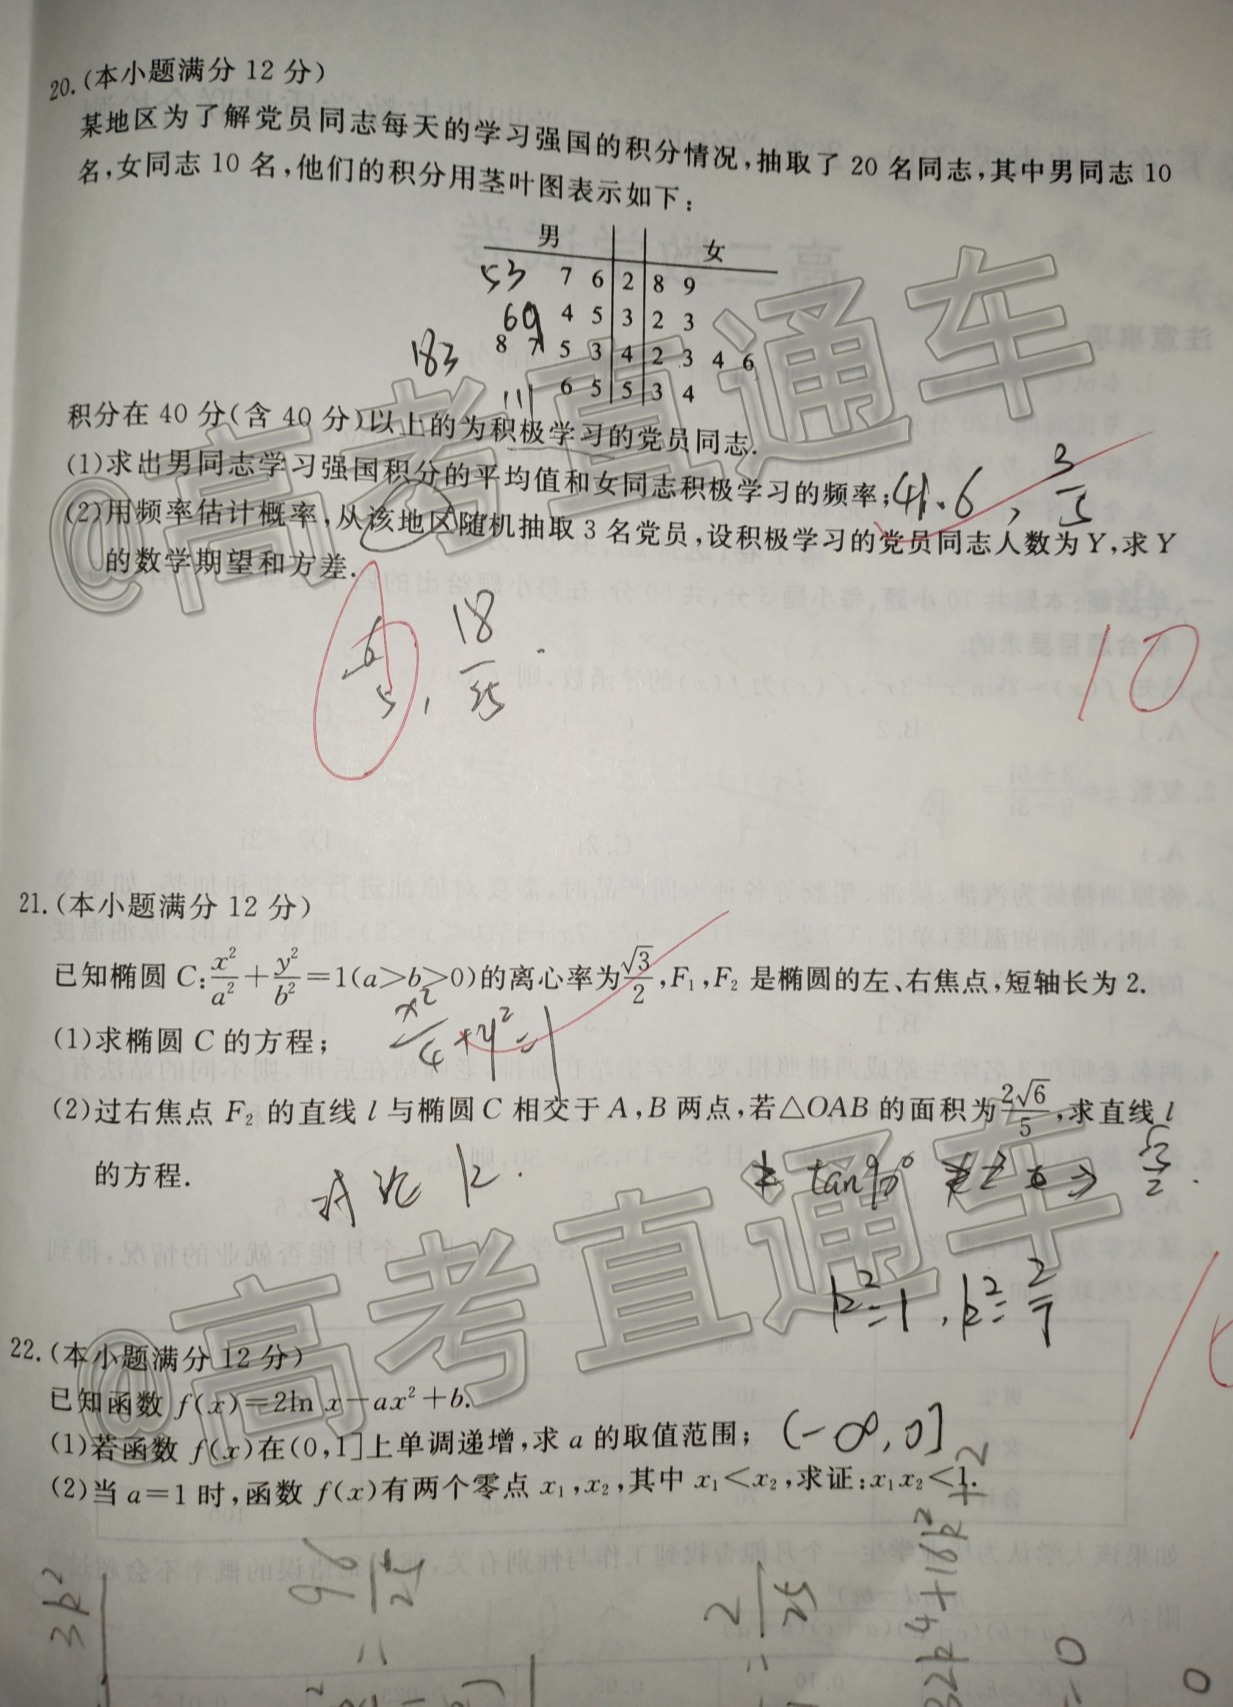 20.(本小题满分12分)
某地区为了解党员同志每天的学习强国的积分情况,抽取了20名同志,其中男同志10
名,女同志10名,他们的积分用茎叶图表示如下:
男 女
53 7 6 2 8 9
69 4 5 3 2 3
183 8 7 5 3 4 2 3 4 6
111 6 5 5 3 4
积分在40分(含40分)以上的为积极学习的党员同志.
(1)求出男同志学习强国积分的平均值和女同志积极学习的频率; 41.6, 3/5
(2)用频率估计概率,从该地区随机抽取3名党员,设积极学习的党员同志人数为Y,求Y
的数学期望和方差.
18/25
10
21.(本小题满分12分)
已知椭圆C:x²/a²+y²/b²=1(a>b>0)的离心率为√3/2,F₁,F₂是椭圆的左、右焦点,短轴长为2.
(1)求椭圆C的方程; x²/4+y²=1
(2)过右焦点F₂的直线l与椭圆C相交于A,B两点,若△OAB的面积为2√6/5,求直线l
的方程. 讨论k. tan90°
k²=1, k²=2/7
22.(本小题满分12分)
已知函数f(x)=2ln x-ax²+b.
(1)若函数f(x)在(0,1]上单调递增,求a的取值范围; (-∞,0]
(2)当a=1时,函数f(x)有两个零点x₁,x₂,其中x₁<x₂,求证:x₁x₂<1.
3k²
96/25
2/25
32k⁴+16k²+2
@高考直通车
@高考直通车